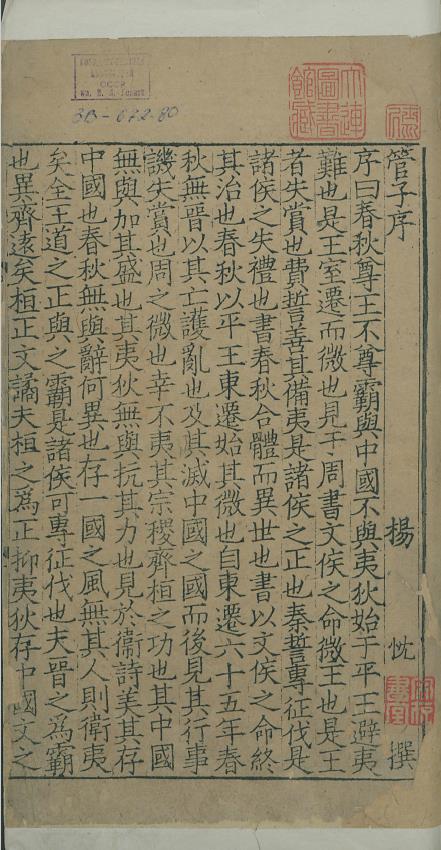 管子序 楊忱撰
序曰春秋尊王不尊霸與中國不與夷狄始于平王避夷
難也是王室遷而微也見于周書文侯之命微王也是王
者失賞也費誓善其備夷是諸侯之正也秦誓專征伐是
諸侯之失禮也書春秋合體而異世也書以文侯之命終
其治也春秋以平王東遷始其微也自東遷六十五年春
秋無晉以其亡護亂也及其滅中國之國而後見其行事
譏失賞也周之微也幸不夷其宗稷齊桓之功也其中國
無與加其盛也其夷狄無與抗其力也見於衞詩美其存
中國也春秋無與辭何異也存一國之風無其人則衛夷
矣全王道之正與之霸是諸侯可專征伐也夫晉之為霸
也異齊遠矣桓正文譎夫桓之為正抑夷狄存中國文之
大連
圖書
館藏
CCCP
3B-672-80